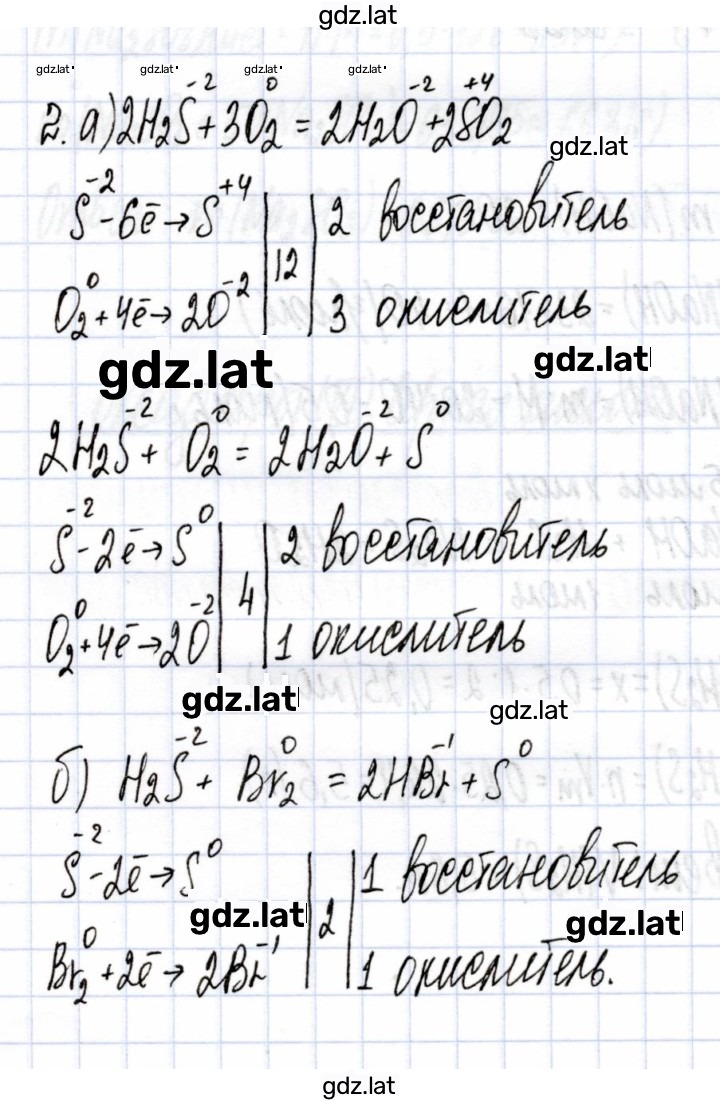 gdz.lat
gdz.lat gdz.lat gdz.lat gdz.lat
2. а) 2H₂S⁻² + 3O₂⁰ = 2H₂O⁻² + 2S⁺⁴O₂
gdz.lat
S⁻² - 6ē → S⁺⁴ | 12 | 2 восстановитель
O₂⁰ + 4ē → 2O⁻² | | 3 окислитель
gdz.lat gdz.lat
2H₂S⁻² + O₂⁰ = 2H₂O⁻² + S⁰
S⁻² - 2ē → S⁰ | 4 | 2 восстановитель
O₂⁰ + 4ē → 2O⁻² | | 1 окислитель
gdz.lat gdz.lat
б) H₂S⁻² + Br₂⁰ = 2HBr⁻¹ + S⁰
S⁻² - 2ē → S⁰ | 2 | 1 восстановитель
gdz.lat gdz.lat
Br₂⁰ + 2ē → 2Br⁻¹ | | 1 окислитель.
gdz.lat